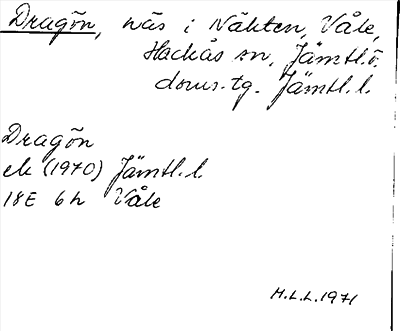 Dragön, näs i Näkten, Våle,
Hackås sn, Jämtl. ö.
doms.-tg. Jämtl. l.
Dragön
ek (1970) Jämtl. l.
18E 6h Våle
H.L.L. 1971